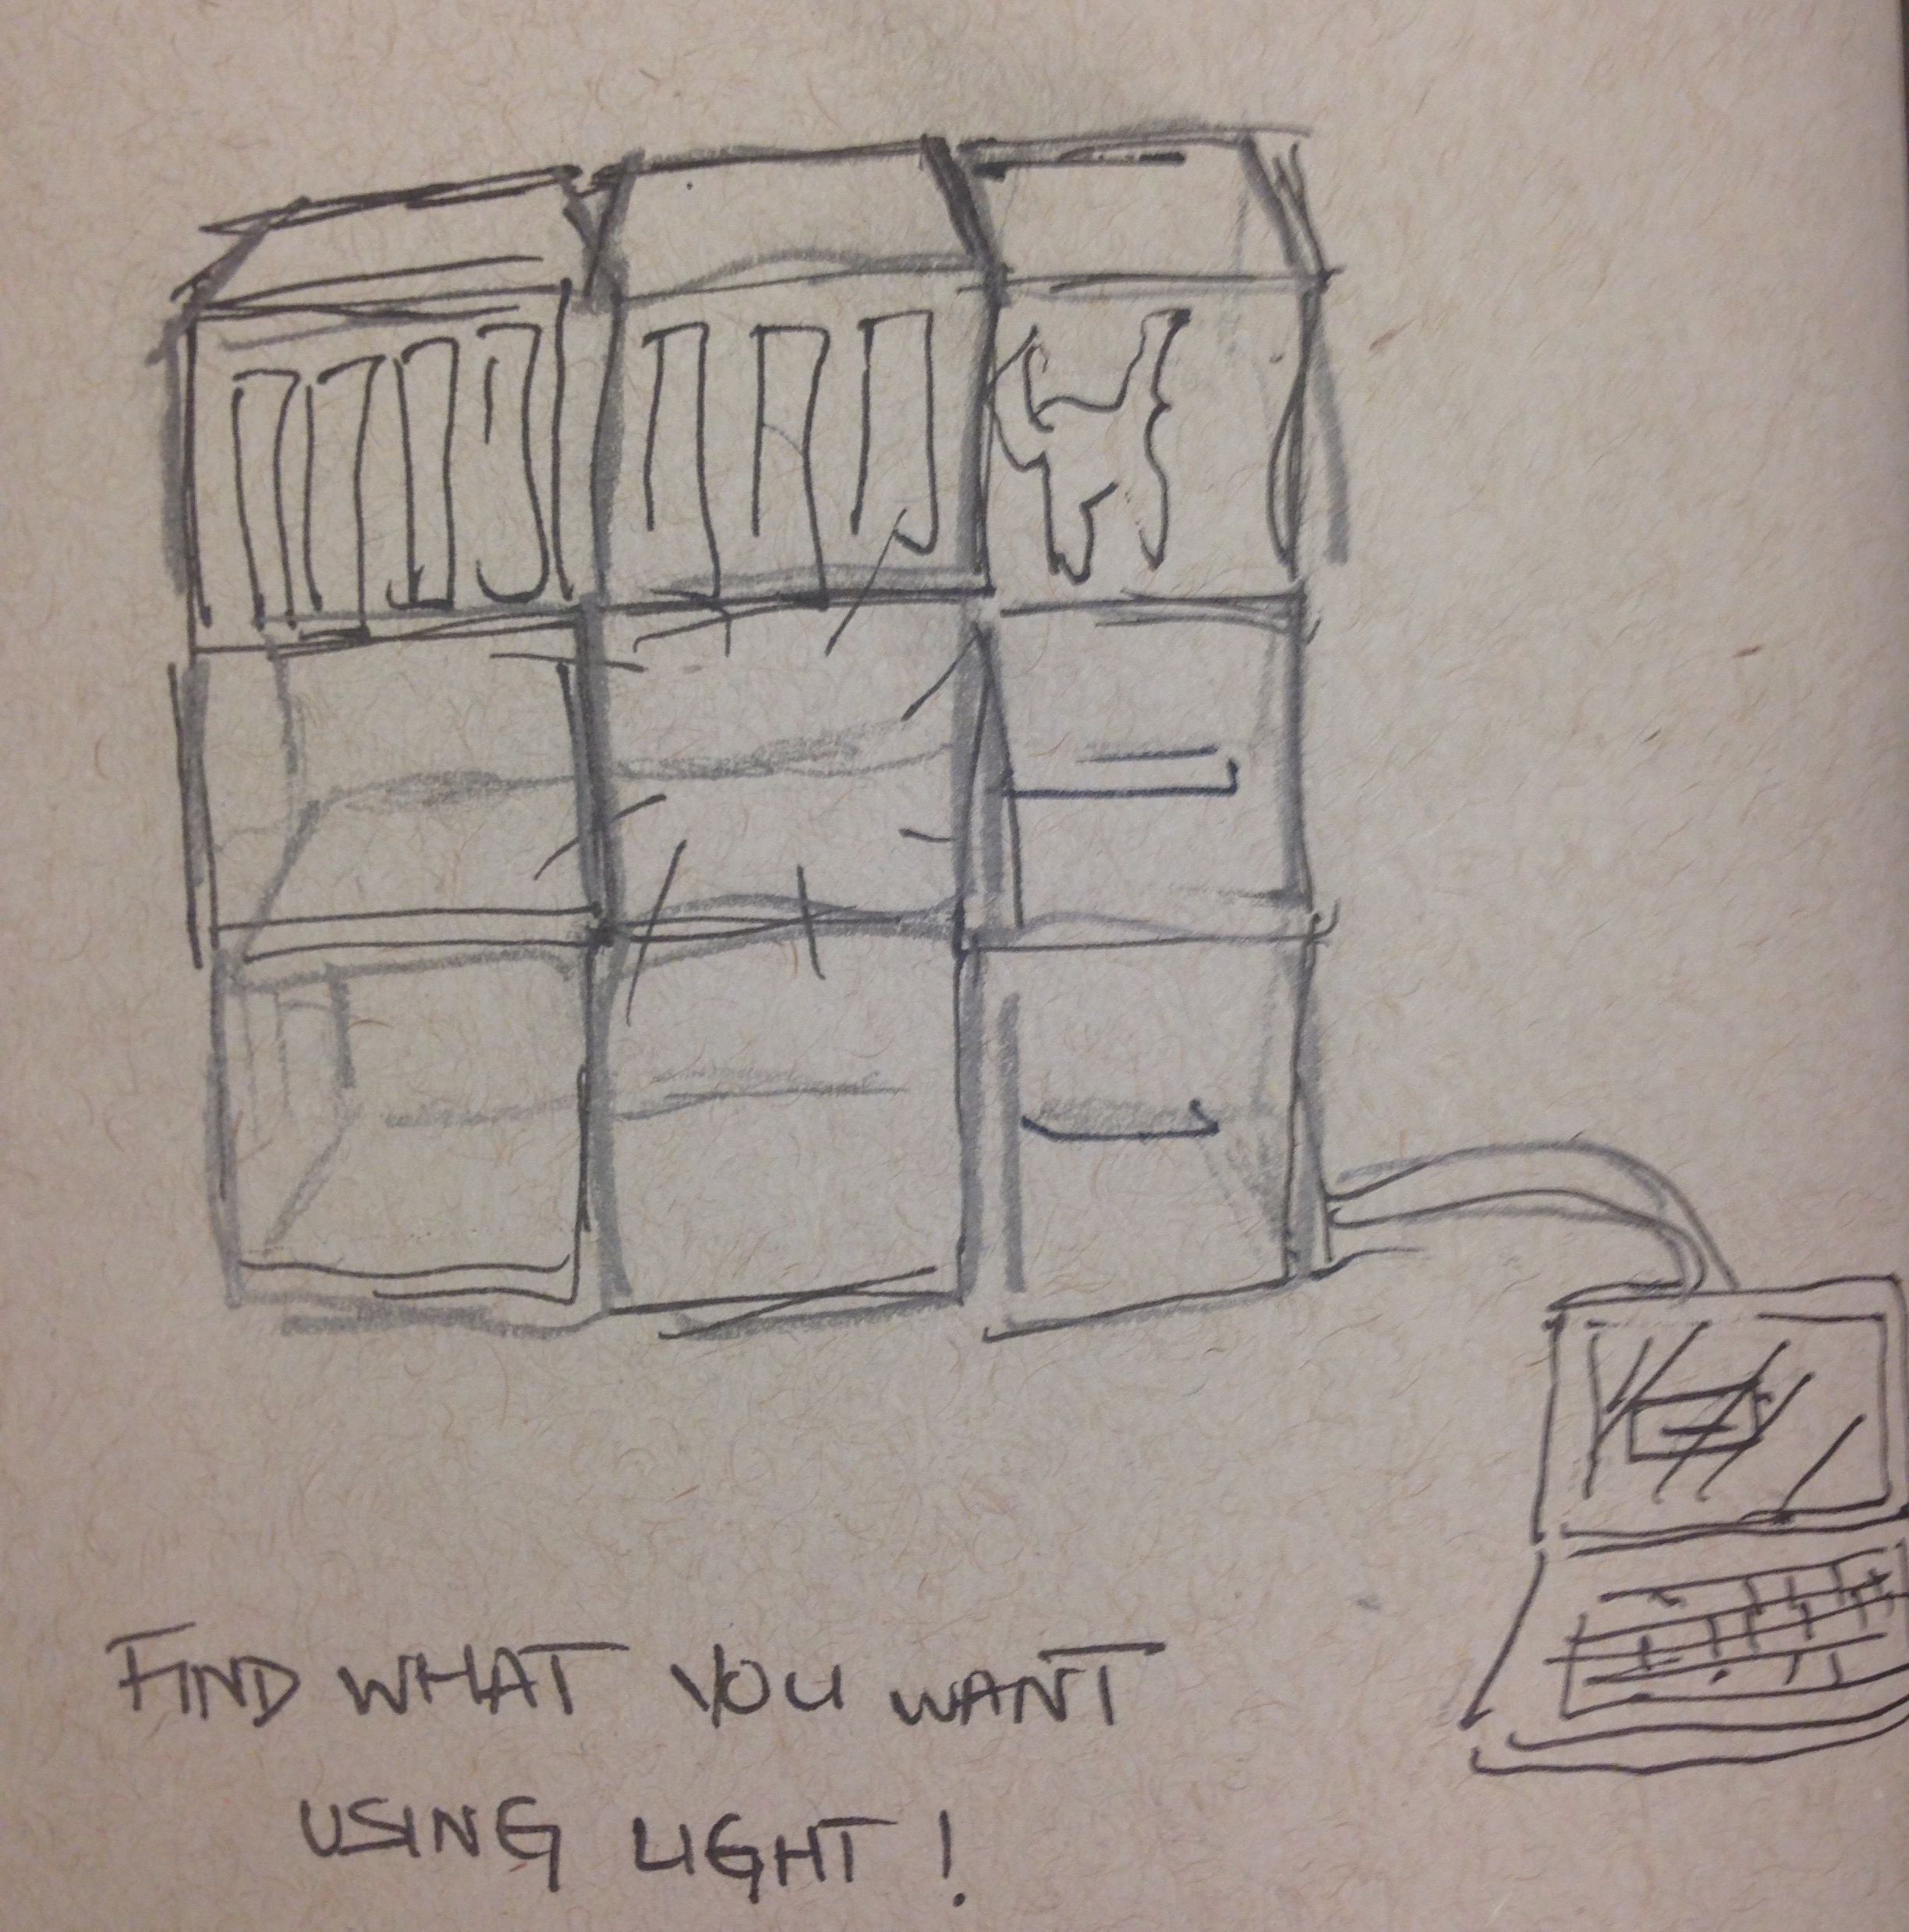 FIND WHAT YOU WANT
USING LIGHT!